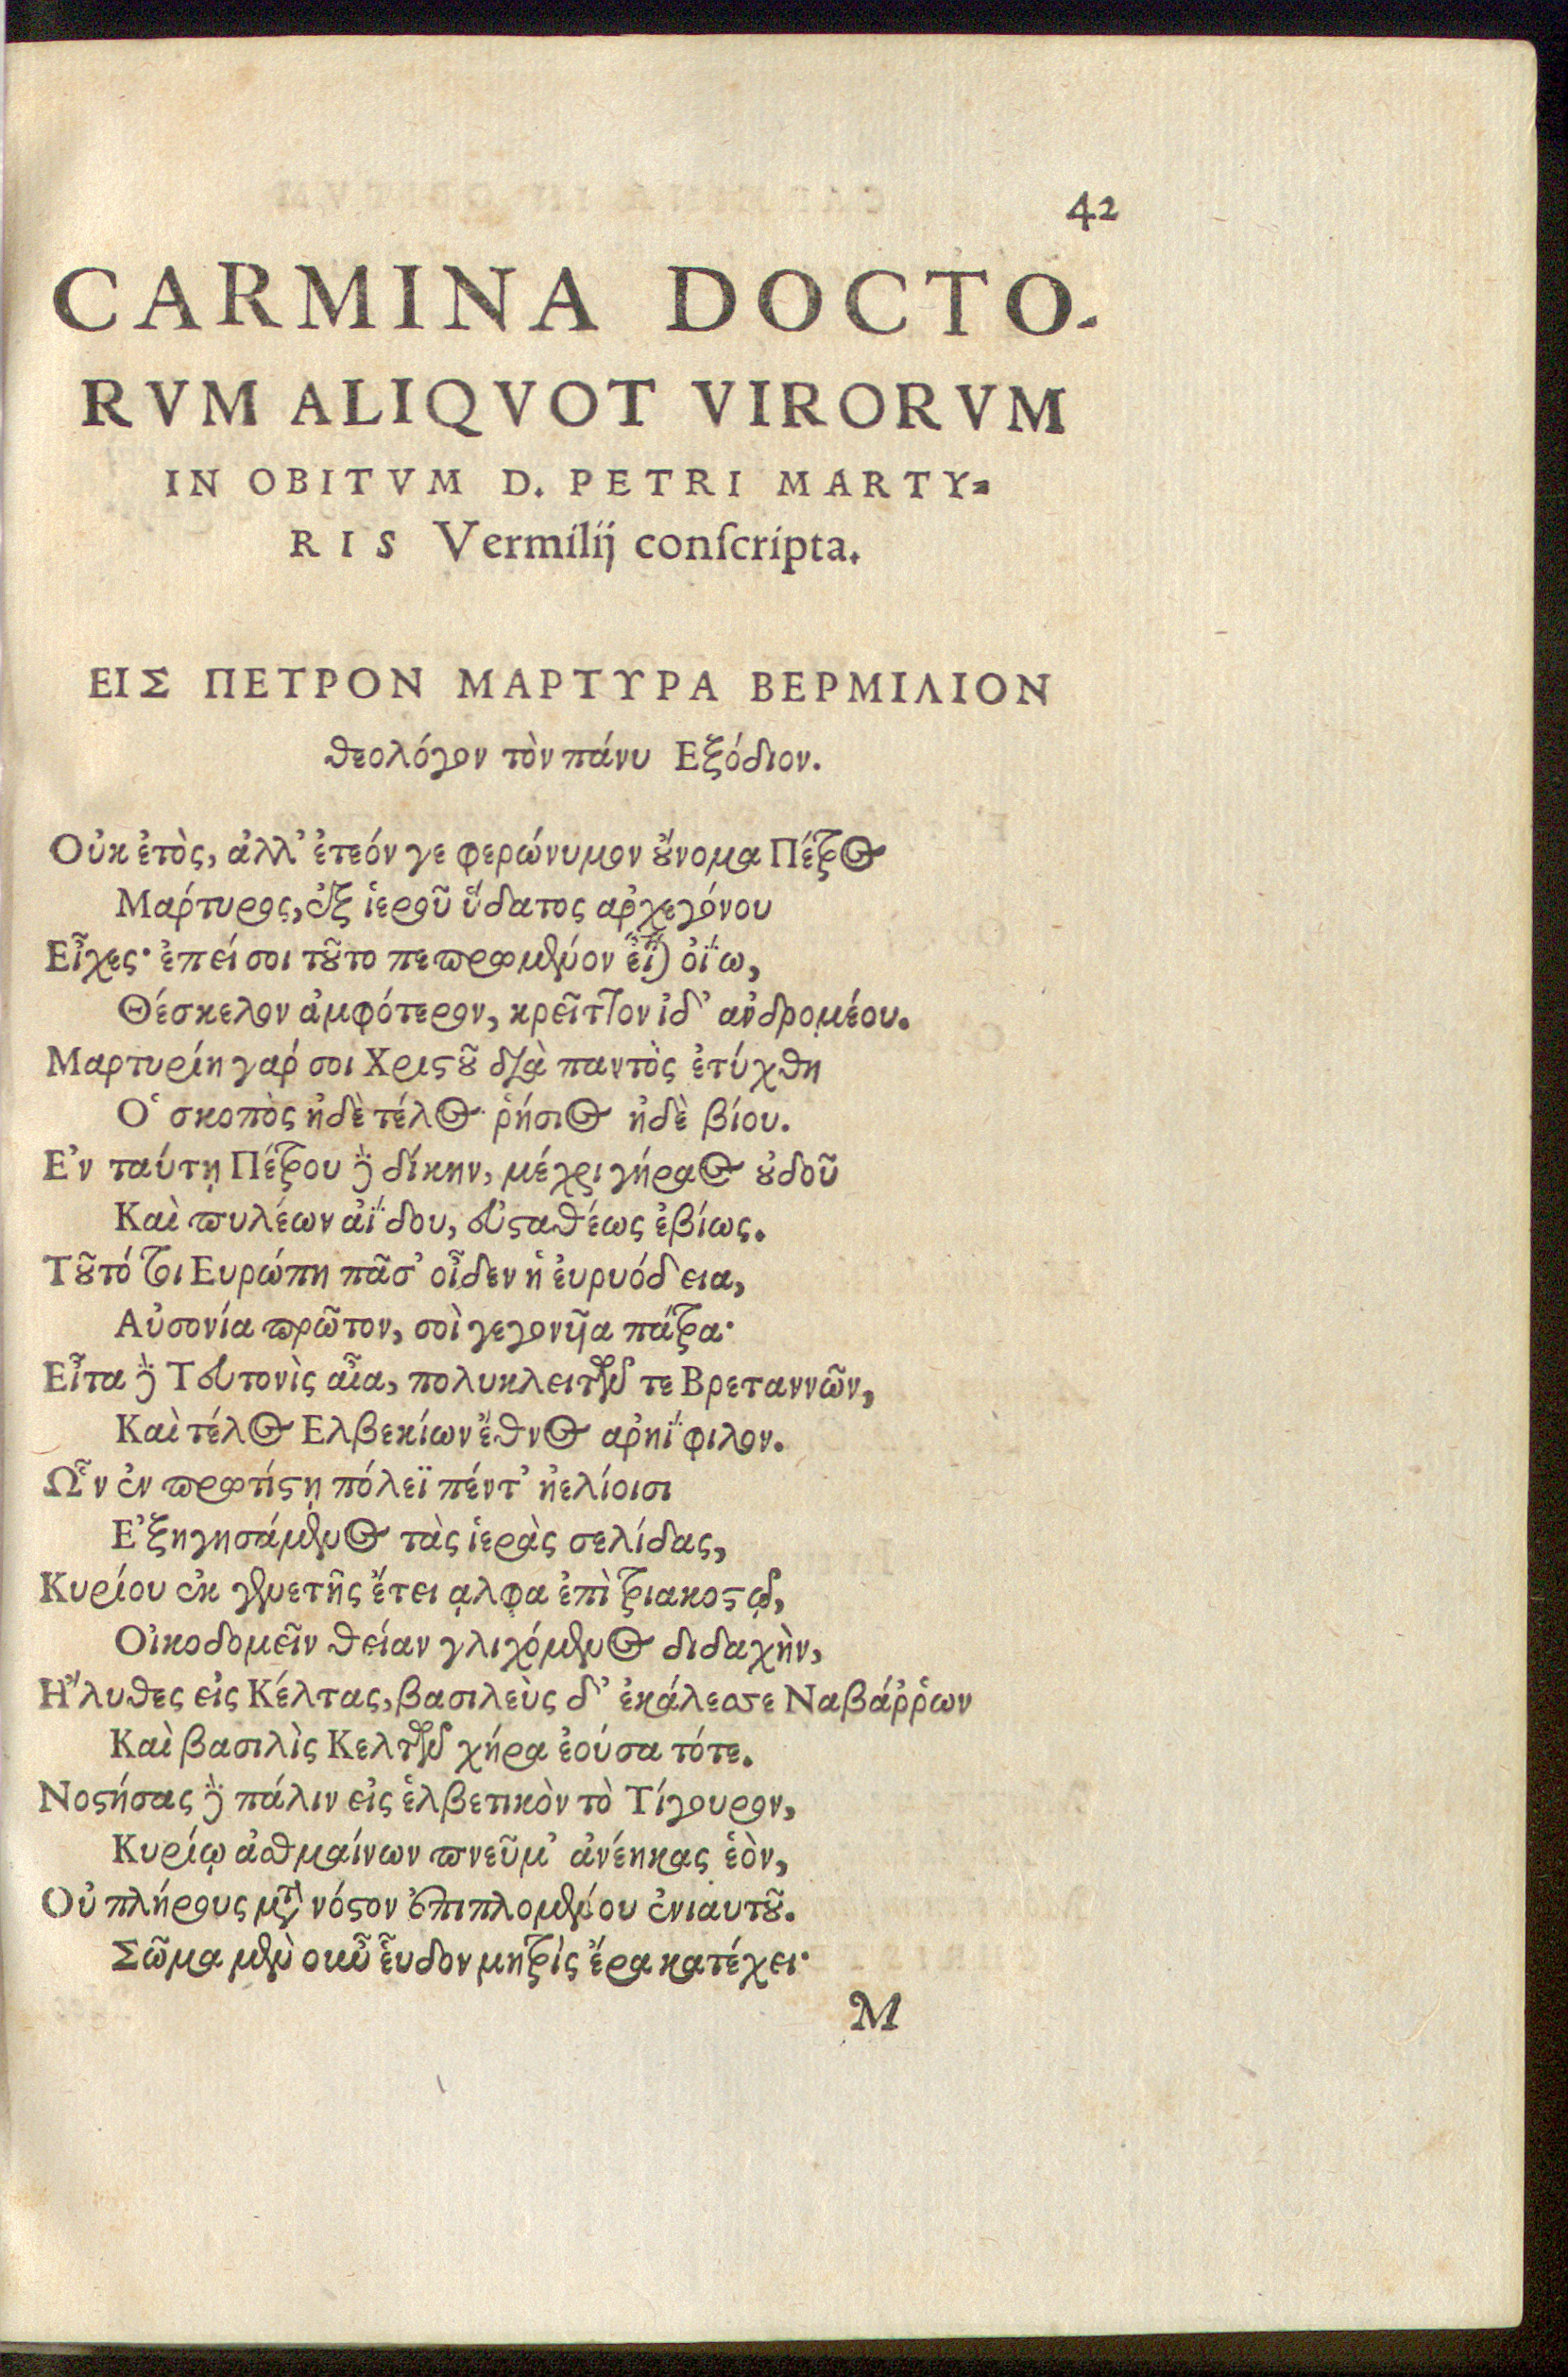 42
CARMINA DOCTO-
RVM ALIQVOT VIRORVM
IN OBITVM D. PETRI MARTY=
RIS Vermilij conſcripta.
ΕΙΣ ΠΕΤΡΟΝ ΜΑΡΤΥΡΑ ΒΕΡΜΙΛΙΟΝ
θεολόγον τὸν πάνυ Εξόδιον.
Οὐκ ἐτὸς, ἀλλ' ἐτεόν γε φερώνυμον ȣ̓́νομα Πέτρος
Μαρτυρος, ἐξ ἱεροῦ ὕδατος αρχεγόνου
Εἶχες· ἐπεί σοι τȣ͂το πεπρωμένον οἴω,
Θέσκελον ἀμφότερον, κρεῖττον ἰδ' ανδρομέου.
Μαρτυρίη γάρ σοι Χριϛȣ͂ διὰ παντὸς ἐτύχθη
Ὁ σκοπὸς ἠδὲ τέλος ῥήσιος ἠδὲ βίου.
Ἐν ταύτῃ Πέτρου δίκην, μέχρι γήραος ȣ̓δοῦ
Καὶ πυλέων ἀΐδου, εὐϛαθέως ἐβίως.
Τȣ͂τό τοι Ευρώπη πᾶσ' οἶδεν ἡ ἐυρυόδεια,
Αὐσονία πρῶτον, σοὶ γεγονῦια πάτρα·
Εἶτα Τευτονὶς αἶα, πολυκλειτῶν τε Βρεταννῶν,
Καὶ τέλος Ελβεκίων ἔθνος αρηΐφιλον.
Ὧν ἐν πρωτίϛῃ πόλεϊ πέντ' ἠελίοισι
Ἐξηγησάμενος τὰς ἱερὰς σελίδας,
Κυρίου ἐκ γενετῆς ἔτει αλφα ἐπὶ τριακοϛῷ,
Οἰκοδομεῖν θείαν γλιχόμενος διδαχὴν,
Ἤλυθες εἰς Κέλτας, βασιλεὺς δ' ἐκάλεσσε Ναβάῤῥων
Καὶ βασιλὶς Κελτῶν χήρα ἐούσα τότε.
Νοϛήσας πάλιν εἰς ἑλβετικὸν τὸ Τίγουρον,
Κυρίῳ ἀσθμαίνων πνεῦμ' ἀνέηκας ἑὸν,
Οὐ πλήρους μετὰ νόϛον ἐπιπλομένου ἐνιαυτȣ͂.
Σῶμα μὲν εὗδον μητρὶς ἔρα κατέχει·
M